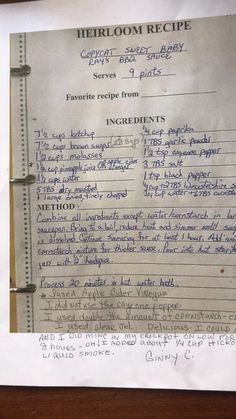 HEIRLOOM RECIPE
COPYCAT SWEET BABY
RAY'S BBQ SAUCE
Serves 9 pints
Favorite recipe from
INGREDIENTS
7½ cups ketchup
7½ cup brown sugar
1½ cups molasses
cup pineapple juice OR apple cider
1½ cups water
5 TBS dry mustard
1 large onion, finely chopped
¼ cup paprika
1 TBS garlic powder
1½ tsp cayenne pepper
3 TBS salt
¼ cup + 2 TBS Worcestershire
¼ cup water +
METHOD
Combine all ingredients except water/cornstarch in
saucepan. Bring to a boil, reduce heat and simmer until
is dissolved. Continue simmering for at least 1 hour. Add
cornstarch mixture for thicker sauce. Pour into hot
jars with ½" headspace
Process 20 minutes in hot water bath.
I used Apple Cider Vinegar
I did not use the cayenne pepper.
I used double the amount of cornstarch
I used clear Jel. Delicious. I could
AND I DID MINE IN MY CROCKPOT ON LOW FOR
8 HOURS - OH I ADDED ABOUT ¼ CUP
LIQUID SMOKE.
GINNY C.